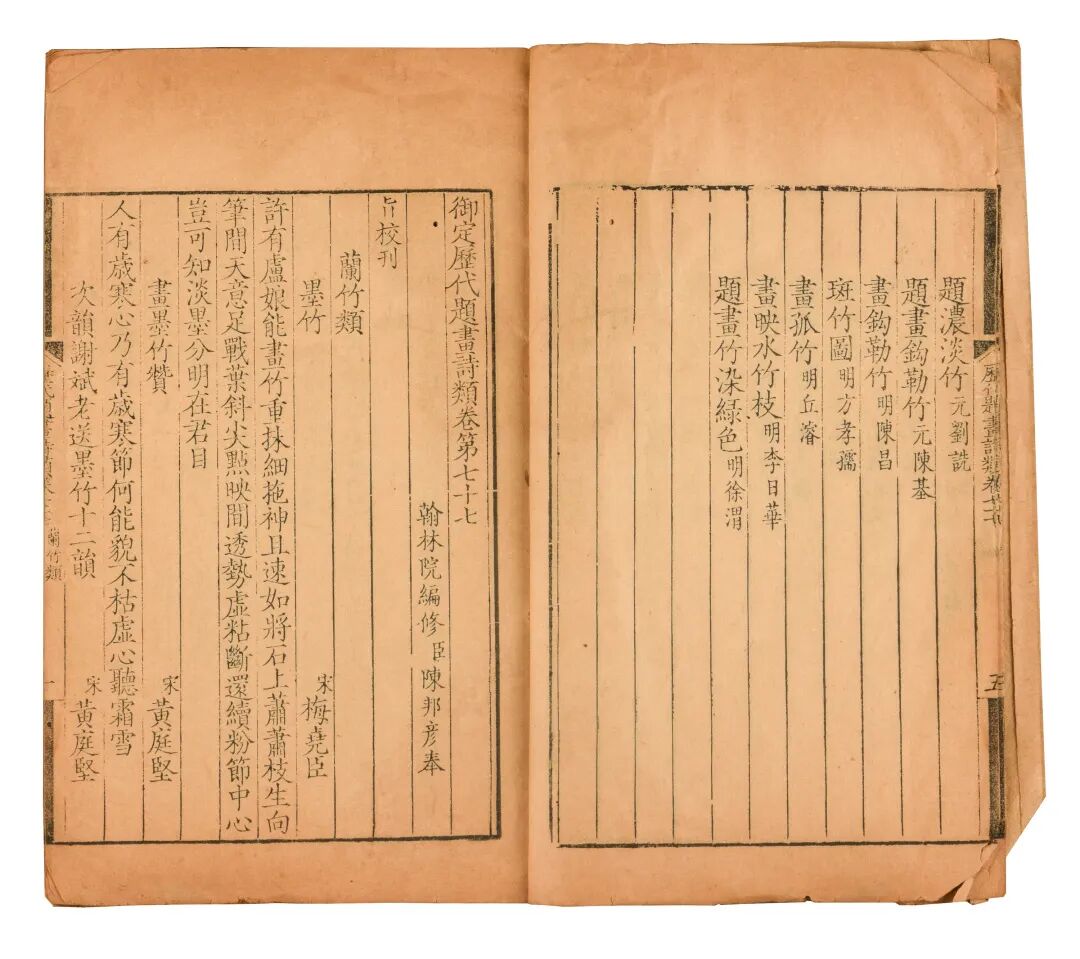 題濃淡竹 元劉詵
題畫鈎勒竹 元陳基
畫鈎勒竹 明陳昌
斑竹圖 明方孝孺
畫孤竹 明丘濬
畫映水竹枝 明李日華
題畫竹染綠色 明徐渭
五
御定歷代題畫詩類卷第七十七
翰林院編修臣陳邦彦奉
旨校刊
蘭竹類
墨竹 宋梅堯臣
許有盧娘能畫竹重抹細拖神且速如將石上蕭蕭枝生向
筆間天意足戰葉斜尖點映間透勢虛粘斷還續粉節中心
豈可知淡墨分明在君目
畫墨竹贊 宋黃庭堅
人有歲寒心乃有歲寒節何能貌不枯虛心聽霜雪
次韻謝斌老送墨竹十二韻 宋黃庭堅
蘭竹類
一